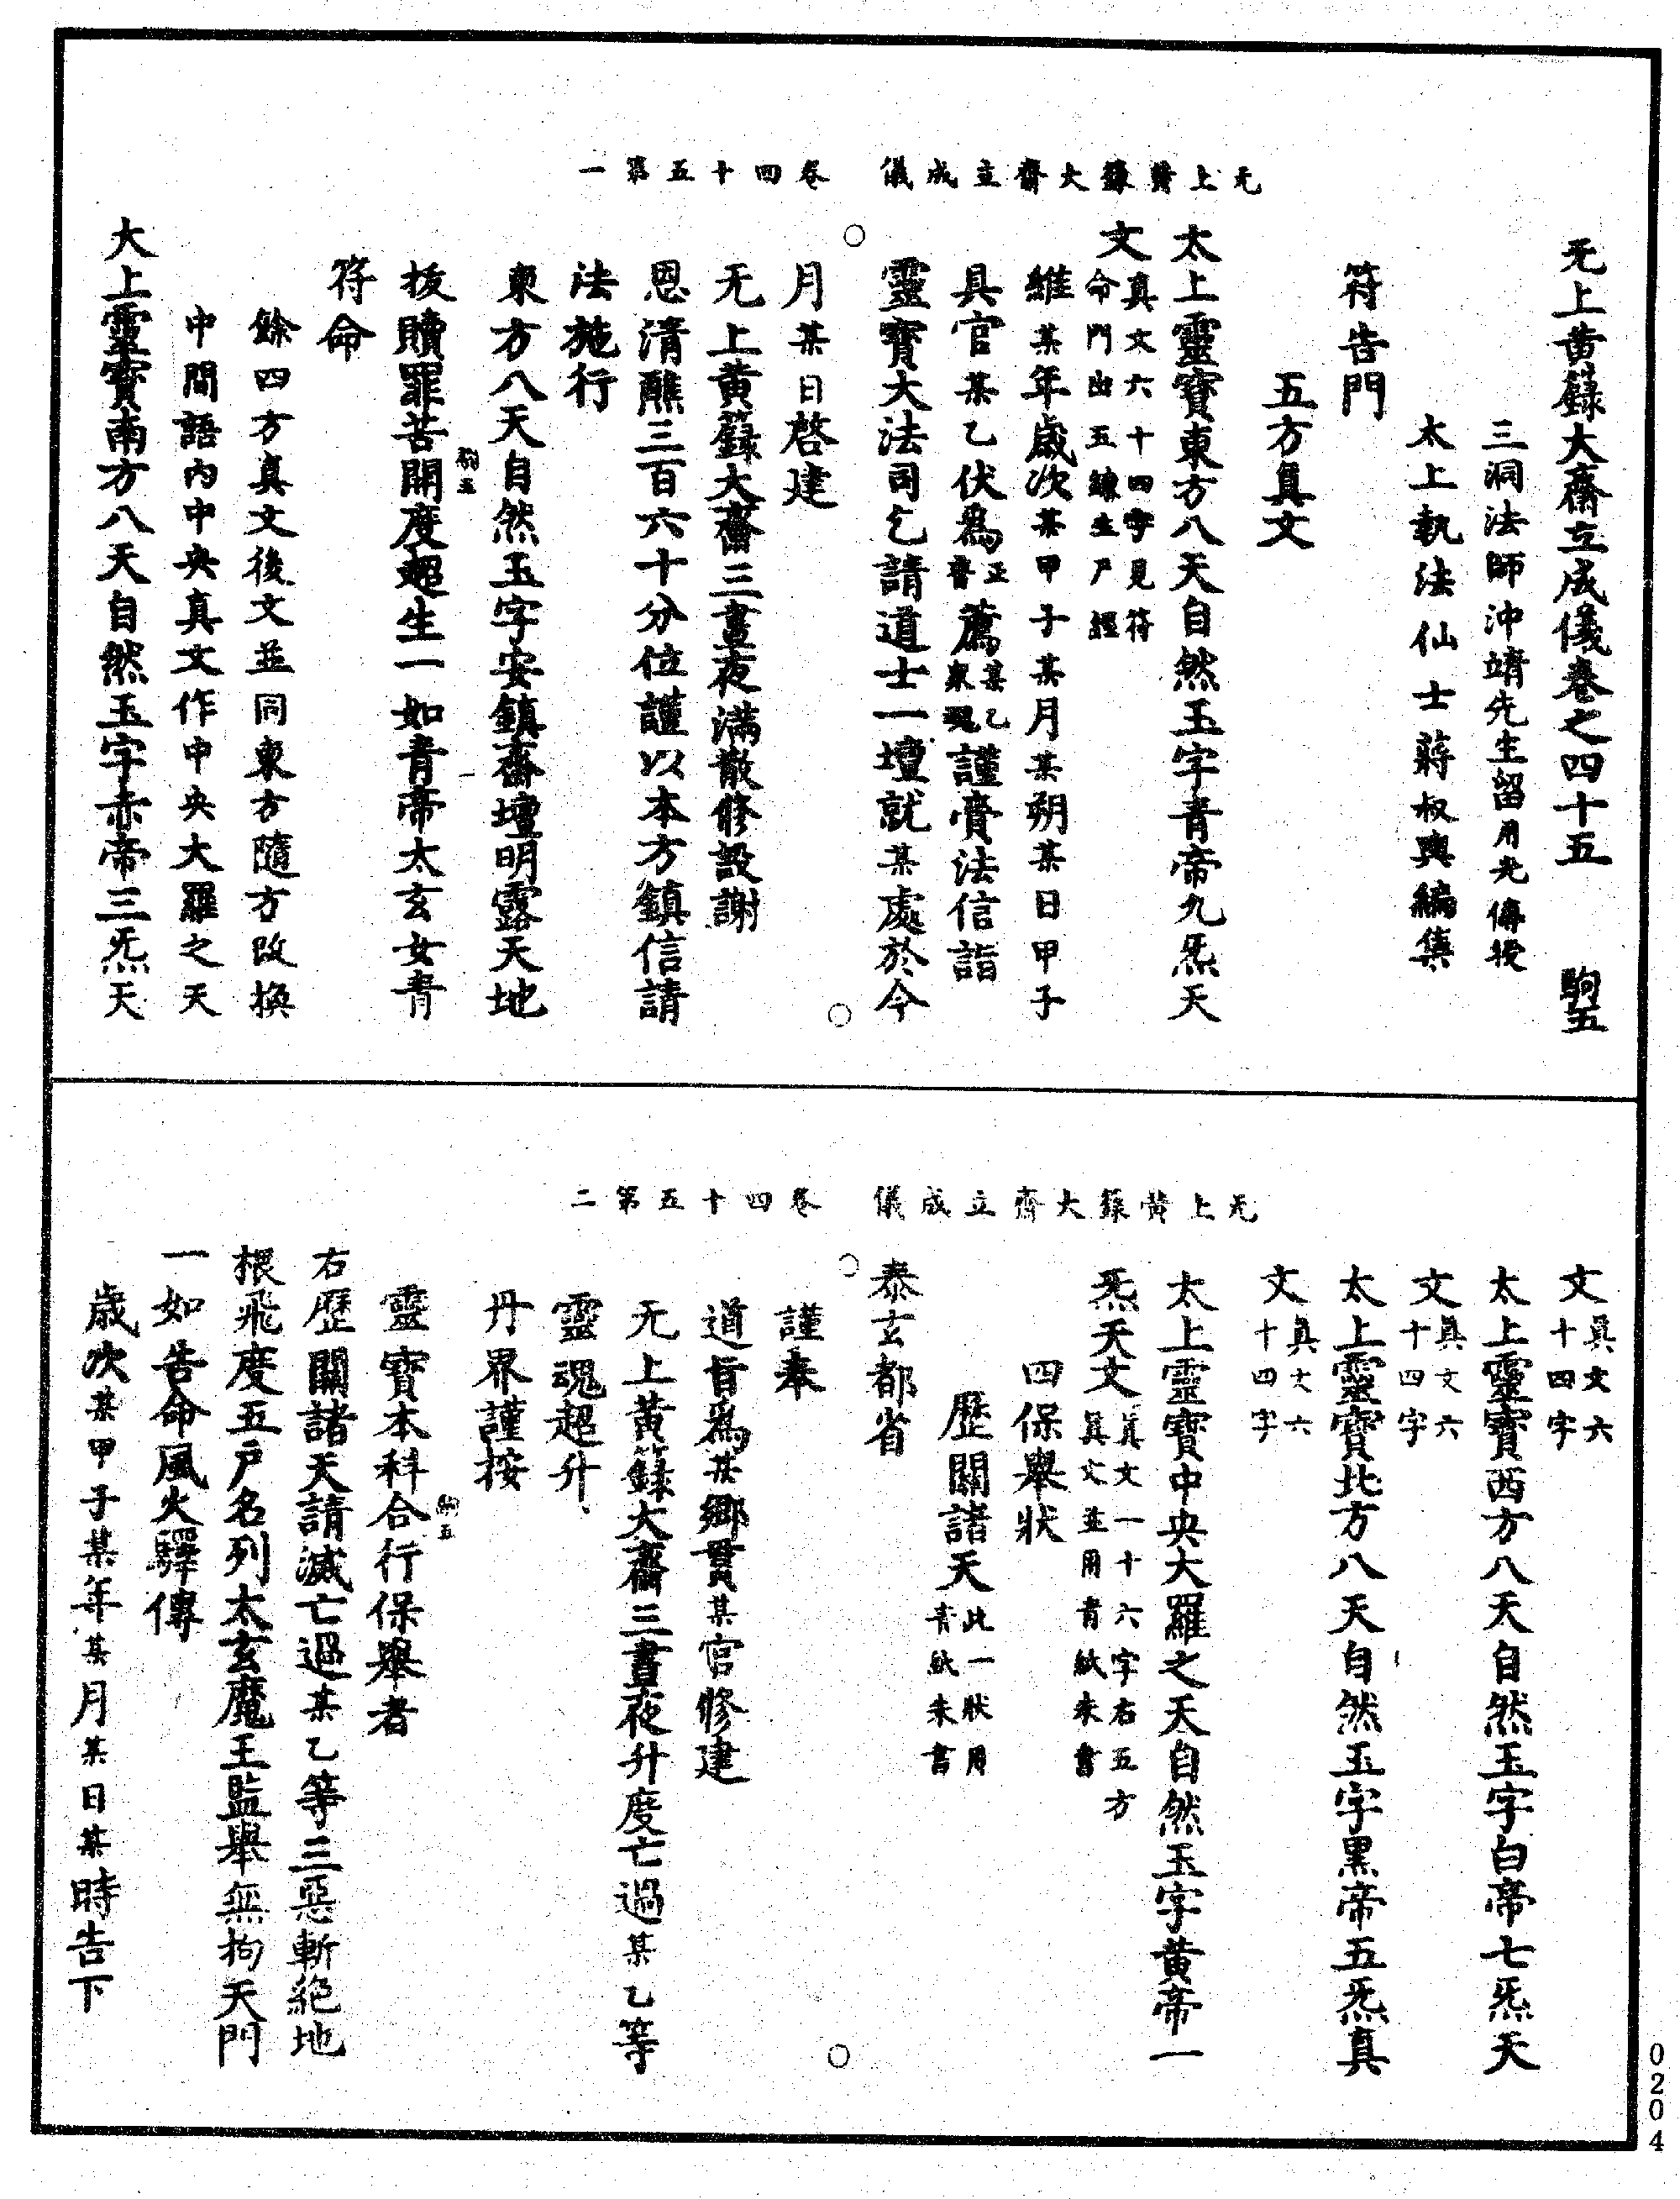 无上黄籙大齋立成儀卷之四十五　駒五
三洞法師沖靖先生留用光傳授
太上執法仙士蔣叔輿編集
符告門
五方真文
太上靈寶東方八天自然玉字青帝九炁天
文真文六十四字見符命門出五鍊生尸經
維某年歲次某甲子某月某朔某日甲子
具官某乙伏爲正齋薦某乙衆魂謹賫法信詣
靈寶大法司乞請道士一壇就某處於今
无上黄籙大齋立成儀　卷四十五第一
月某日啓建
无上黄籙大齋三晝夜滿散修設謝
恩清醮三百六十分位謹以本方鎮信請
法施行
東方八天自然玉字安鎮齋壇明露天地
駒五
拔贖罪苦開度超生一如青帝太玄女青
符命
餘四方真文後文並同東方隨方改換
中間語內中央真文作中央大羅之天
太上靈寶南方八天自然玉字赤帝三炁天
文真文六十四字
太上靈寶西方八天自然玉字白帝七炁天
文真文六十四字
太上靈寶北方八天自然玉字黑帝五炁真
文真文六十四字
太上靈寶中央大羅之天自然玉字黄帝一
炁天文真文一十六字右五方真文並用青紙朱書
四保舉狀
歷關諸天此一狀用青紙朱書
泰玄都省
无上黄籙大齋立成儀　卷四十五第二
謹奉
道旨爲某鄉貫某官修建
无上黄籙大齋三晝夜升度亡過某乙等
靈魂超升
丹界謹按
駒五
靈寶本科合行保舉者
右歷關諸天請滅亡過某乙等三惡斬絕地
根飛度五戶名列太玄魔王監舉無拘天門
一如告命風火驛傳
歲次某甲子某年某月某日某時告下
0204